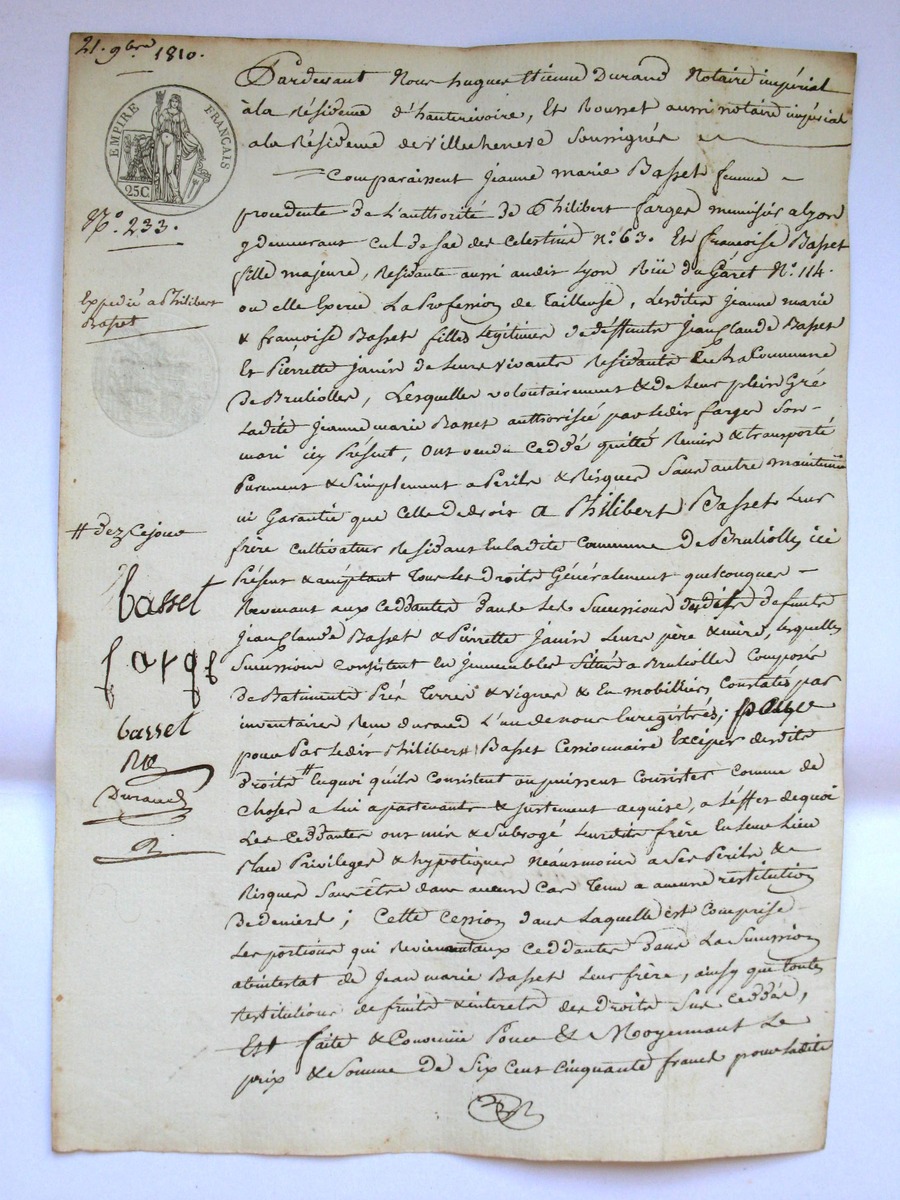 21. 9bre 1810.
EMPIRE FRANÇAIS
25C
N.° 233.
Expedié a Philibert
Basset
# dez cejour
Basset
farge
basset
Durand
Pardevant Nous hugues Etienne Durand Notaire impérial
à la Résidence d'hauterivoire, Et Rousset aussi notaire impérial
a la Résidence de villecheneve Soussignés
Comparaissent jeanne marie Basset femme
procedente de L'authorité de Philibert farges menuisier a lyon
y demeurant cul de sac des Celestins n.° 63. Et françoise Basset
fille majeure, Residante aussi audit Lyon Rüe du Garet N.° 114.
ou elle Exerce La Profession de Tailleuse, Lesdites jeanne marie
& françoise Basset filles Légitimes de deffunts jean Claude Basset
Et Pierrette janin de Leurs vivants Residants En La Commune
De Brullioles, Lesquelles volontairement & de Leur plein Gré
Ladite jeanne marie Basset authorisée par Ledit farges Son
mari icy Présent, ont vendu Ceddé quitté Remis & transporté
Purement & Simplement a Périls & Risques Sans autre maintenue
ni Garantie que Celle de droit a Philibert Basset Leur
frère Cultivateur Residant En ladite Commune De Brullioles ici
Présent & acceptant Tous Les Droits Généralement quelconques
Revenant aux Ceddantes Dans Les Successions desdits defunts
jean Claude Basset & Pierrette Janin Leurs père & mère, lesquelles
Successions Consistent En jmmeubles Situés a Brullioles Composés
De Batiments Prés Terres & vignes & En mobilliers Constatés par
inventaires Remi durand L'un de nous Enregistrés; pour
pour Par Ledit Philibert Basset Cessionnaire Exciper desdits
Droits # En quoi qu'ils Consistent ou puissent Consister Comme de
Choses a Lui apartenants & justement acquise, a L'éffet de quoi
Les Ceddantes ont mis & Subrogé Leurdit frère En Leur Lieu
Place Privileges & hypotiques Néansmoins a Ses Périls &
Risques Sans être dans aucun Cas Tenu a aucune restitution
De deniers; Cette Cession dans Laquelle est Comprise
Les portions qui Reviennent aux Ceddantes Dans La Succession
abintestat de Jean marie Basset Leur frère, ainsy que toutes
Restitutions de fruits & interets des Droits Sus Ceddés,
Est faite & Convenüe Pour & Moyennant Le
prix & Somme De Six Cent Cinquante francs pour Ladite